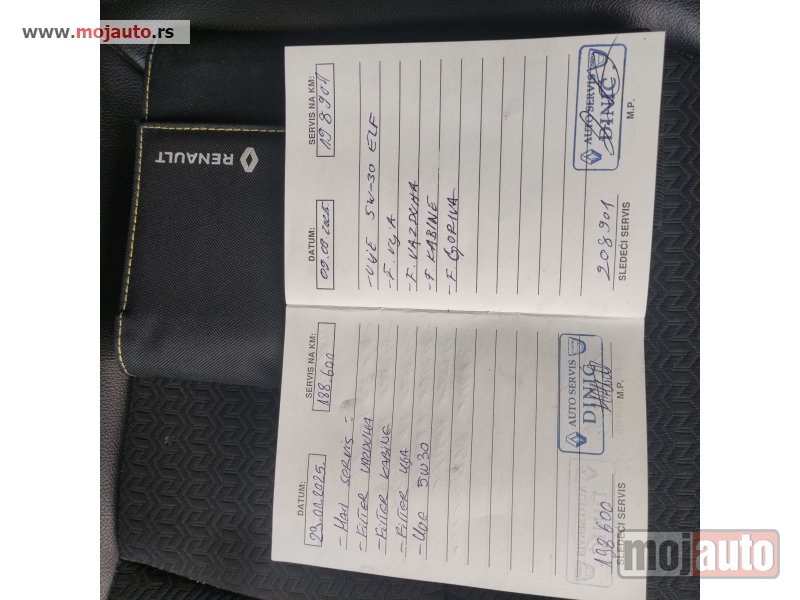 www.mojauto.rs
RENAULT
DATUM:
23.01.2025.
SERVIS NA KM:
188.600
- MALI SERVIS :
- FILTER VAZDUHA
- FILTER KABINE
- FILTER ULJA
- ULJE 5W30
198.600
SLEDEĆI SERVIS
AUTO SERVIS
DINIĆ
M.P.
DATUM:
SERVIS NA KM:
198901
- ULJE 5W-30 ELF
- F. ULJA
- F. VAZDUHA
- F. KABINE
- F. GORIVA
208901
SLEDEĆI SERVIS
AUTO SERVIS
DINIĆ
M.P.
mojauto